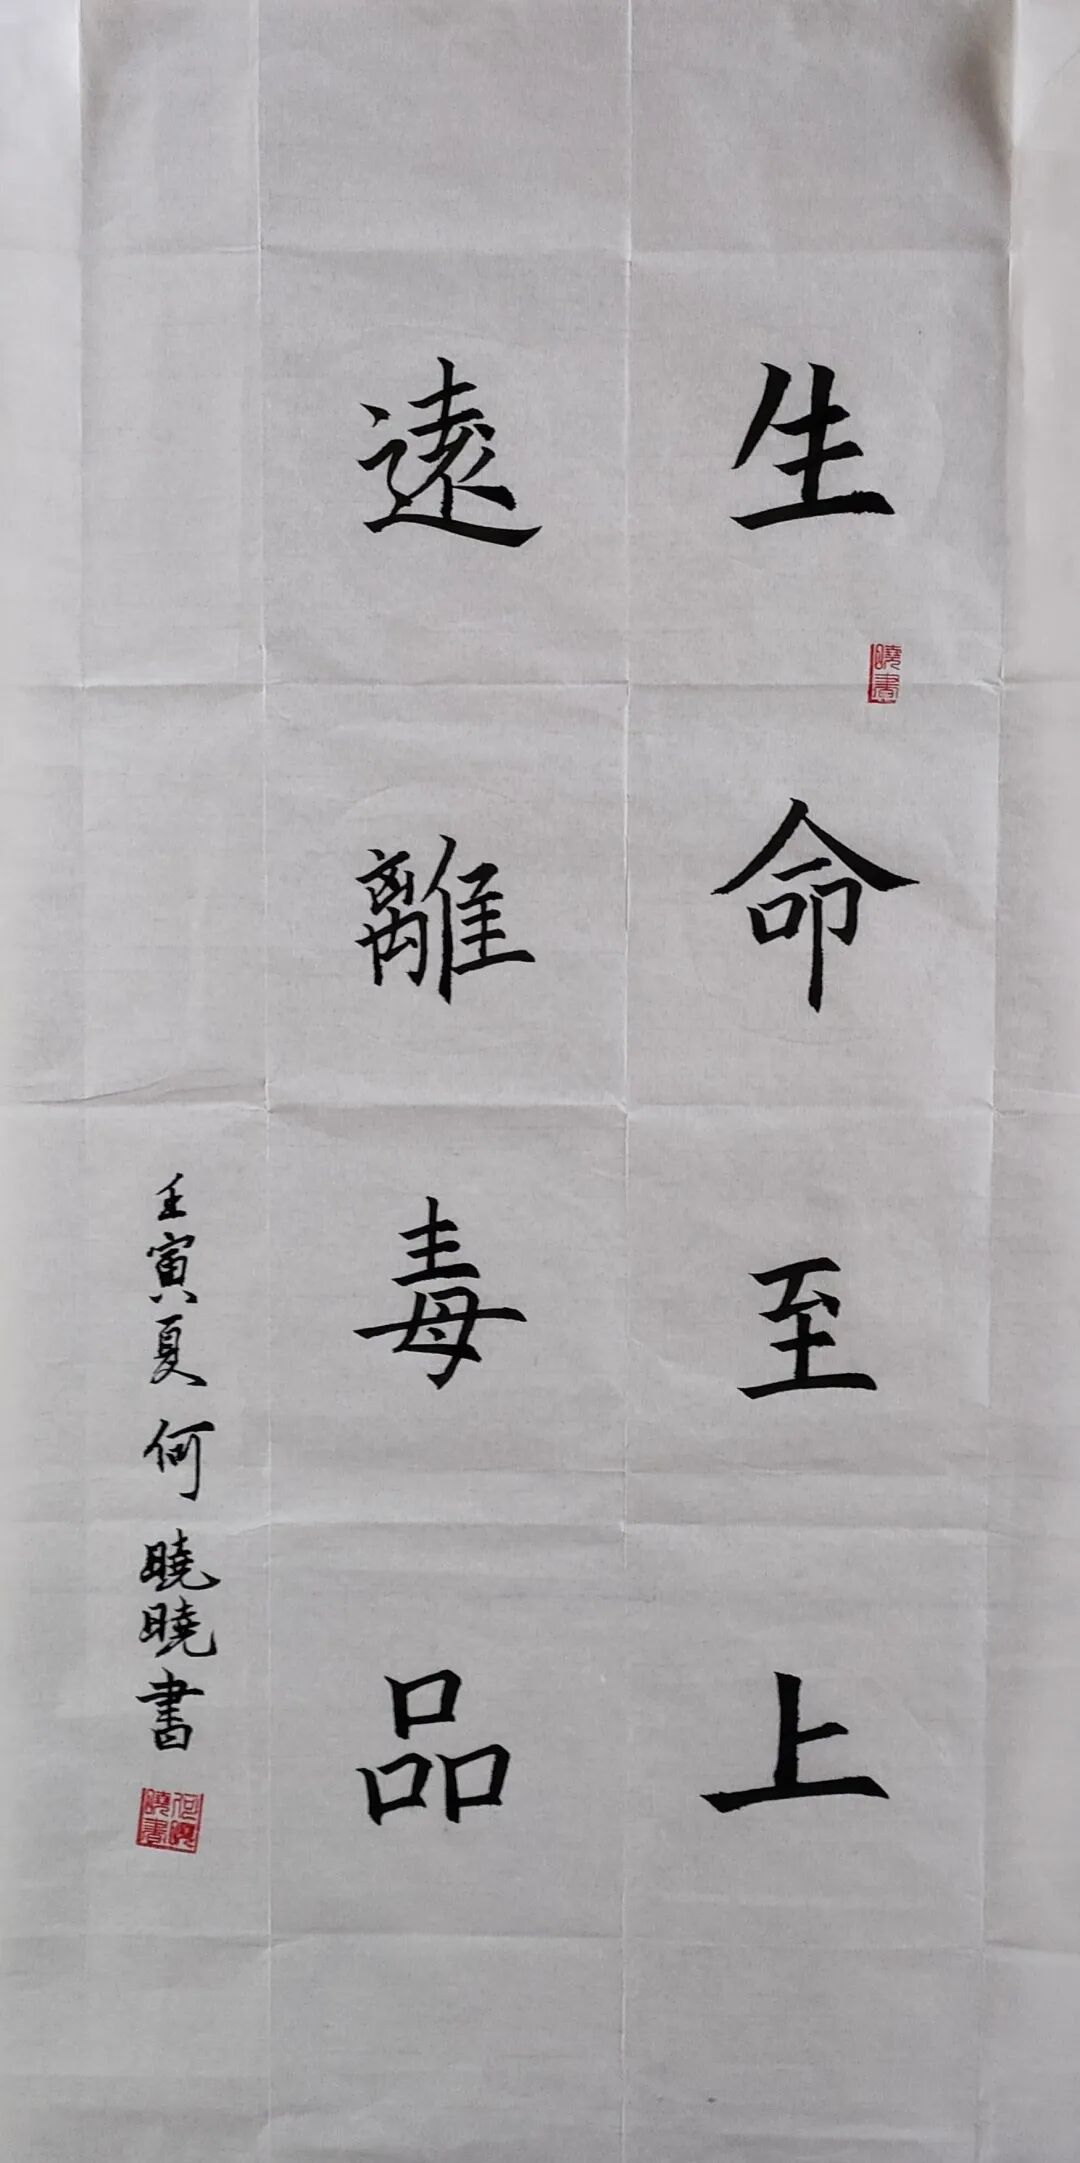 生命至上
遠離毒品
壬寅夏何曉曉書
曉書
何曉曉書